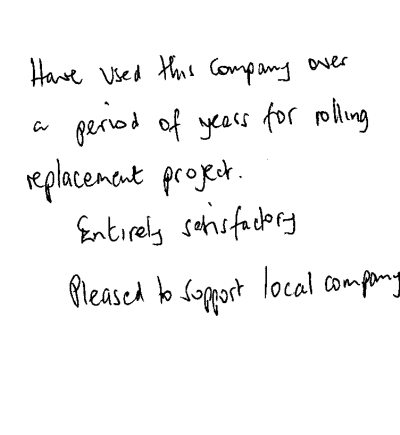 Have used this company over
a period of years for rolling
replacement project.
Entirely satisfactory
Pleased to support local company